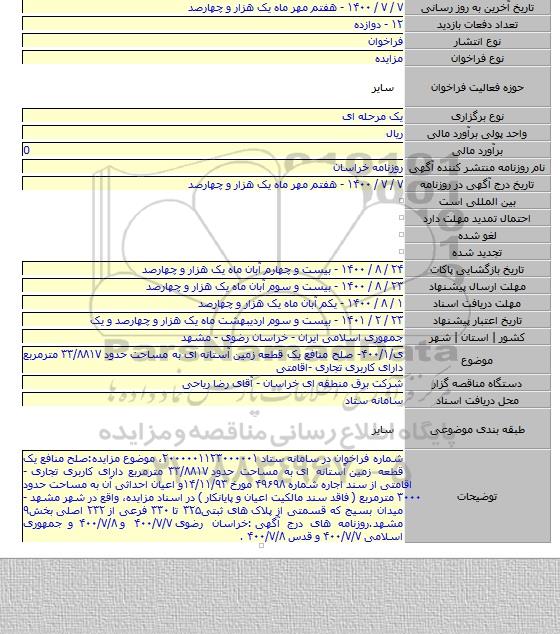 تاریخ آخرین به روز رسانی ۷ / ۷ / ۱۴۰۰ - هفتم مهر ماه یک هزار و چهارصد
تعداد دفعات بازدید ۱۲ - دوازده
نوع انتشار فراخوان
نوع فراخوان مزایده
حوزه فعالیت فراخوان سایر
نوع برگزاری یک مرحله ای
واحد پولی برآورد مالی ریال
برآورد مالی 0
نام روزنامه منتشر کننده آگهی روزنامه خراسان
تاریخ درج آگهی در روزنامه ۷ / ۷ / ۱۴۰۰ - هفتم مهر ماه یک هزار و چهارصد
بین المللی است
احتمال تمدید مهلت دارد
لغو شده
تجدید شده
تاریخ بازگشایی پاکات ۲۴ / ۸ / ۱۴۰۰ - بیست و چهارم آبان ماه یک هزار و چهارصد
مهلت ارسال پیشنهاد ۲۳ / ۸ / ۱۴۰۰ - بیست و سوم آبان ماه یک هزار و چهارصد
مهلت دریافت اسناد ۱ / ۸ / ۱۴۰۰ - یکم آبان ماه یک هزار و چهارصد
تاریخ اعتبار پیشنهاد ۲۳ / ۲ / ۱۴۰۱ - بیست و سوم اردیبهشت ماه یک هزار و چهارصد و یک
کشور | استان | شهر جمهوری اسلامی ایران - خراسان رضوی - مشهد
موضوع ی/۴۰۰/۱- صلح منافع یک قطعه زمین آستانه ای به مساحت حدود ۳۳/۸۸۱۷ مترمربع
دارای کاربری تجاری -اقامتی
دستگاه مناقصه گزار شرکت برق منطقه ای خراسان - آقای رضا ریاحی
محل دریافت اسناد سامانه ستاد
طبقه بندی موضوعی سایر
توضیحات شماره فراخوان در سامانه ستاد ۲۰۰۰۰۰۱۱۲۳۰۰۰۰۰۱، موضوع مزایده:صلح منافع یک
قطعه زمین آستانه ای به مساحت حدود ۳۳/۸۸۱۷ مترمربع دارای کاربری تجاری -
اقامتی از سند اجاره شماره ۴۹۶۹۸ مورخ ۱۴/۱۱/۹۳و اعیان احداثی آن به مساحت حدود
۳۰۰۰ مترمربع ( فاقد سند مالکیت اعیان و پایانکار ) در اسناد مزایده، واقع در شهر مشهد -
میدان بسیج که قسمتی از پلاک های ثبتی۳۲۵ تا ۳۳۰ فرعی از ۲۳۲ اصلی بخش۹
مشهد.روزنامه های درج آگهی :خراسان رضوی ۴۰۰/۷/۷ و ۴۰۰/۷/۸ و جمهوری
اسلامی ۴۰۰/۷/۷ و قدس ۴۰۰/۷/۸ .